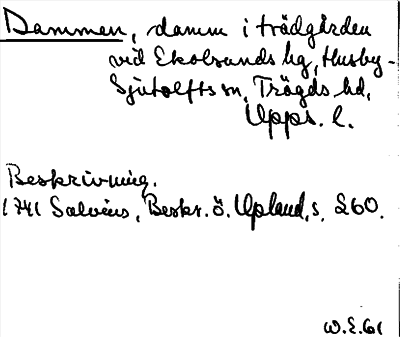 Dammen, damm i trädgården
vid Ekolsunds hg, Husby-
Sjutolfts sn, Trögds hd,
Upps. l.
Beskrivning.
1741 Salvius, Beskr. ö. Upland, s. 260.
W.E.61